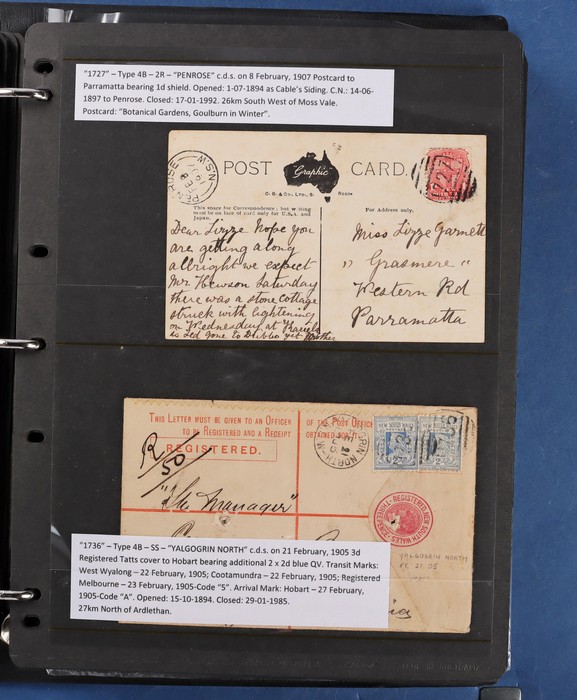 "1727" – Type 4B – 2R – "PENROSE" c.d.s. on 8 February, 1907 Postcard to
Parramatta bearing 1d shield. Opened: 1-07-1894 as Cable's Siding. C.N.: 14-06-
1897 to Penrose. Closed: 17-01-1992. 26km South West of Moss Vale.
Postcard: "Botanical Gardens, Goulburn in Winter".
PENROSE N.S.W.
POST "Graphic" CARD.
This space for Correspondence; but writing
must be on face of card only for U.S.A. and
Japan.
For Address only.
Dear Lizze hope you
are getting along
allright we expect
Mr. Hewson Saturday
there was a stone cottage
struck with lightening
on Wednesday at
is Led gone to Dubbo yet Mother
Miss Lizze Garnett
" Grasmere "
Western Rd
Parramatta
1727
THIS LETTER MUST BE GIVEN TO AN OFFICER OF THE POST OFFICE
TO BE REGISTERED AND A RECEIPT OBTAINED FOR IT.
REGISTERED.
R/50
"The Manager"
NEW SOUTH WALES
REGISTERED NEW SOUTH WALES
YALGOGRIN NORTH
"1736" – Type 4B – SS – "YALGOGRIN NORTH" c.d.s. on 21 February, 1905 3d
Registered Tatts cover to Hobart bearing additional 2 x 2d blue QV. Transit Marks:
West Wyalong – 22 February, 1905; Cootamundra – 22 February, 1905; Registered
Melbourne – 23 February, 1905-Code "5". Arrival Mark: Hobart – 27 February,
1905-Code "A". Opened: 15-10-1894. Closed: 29-01-1985.
27km North of Ardlethan.